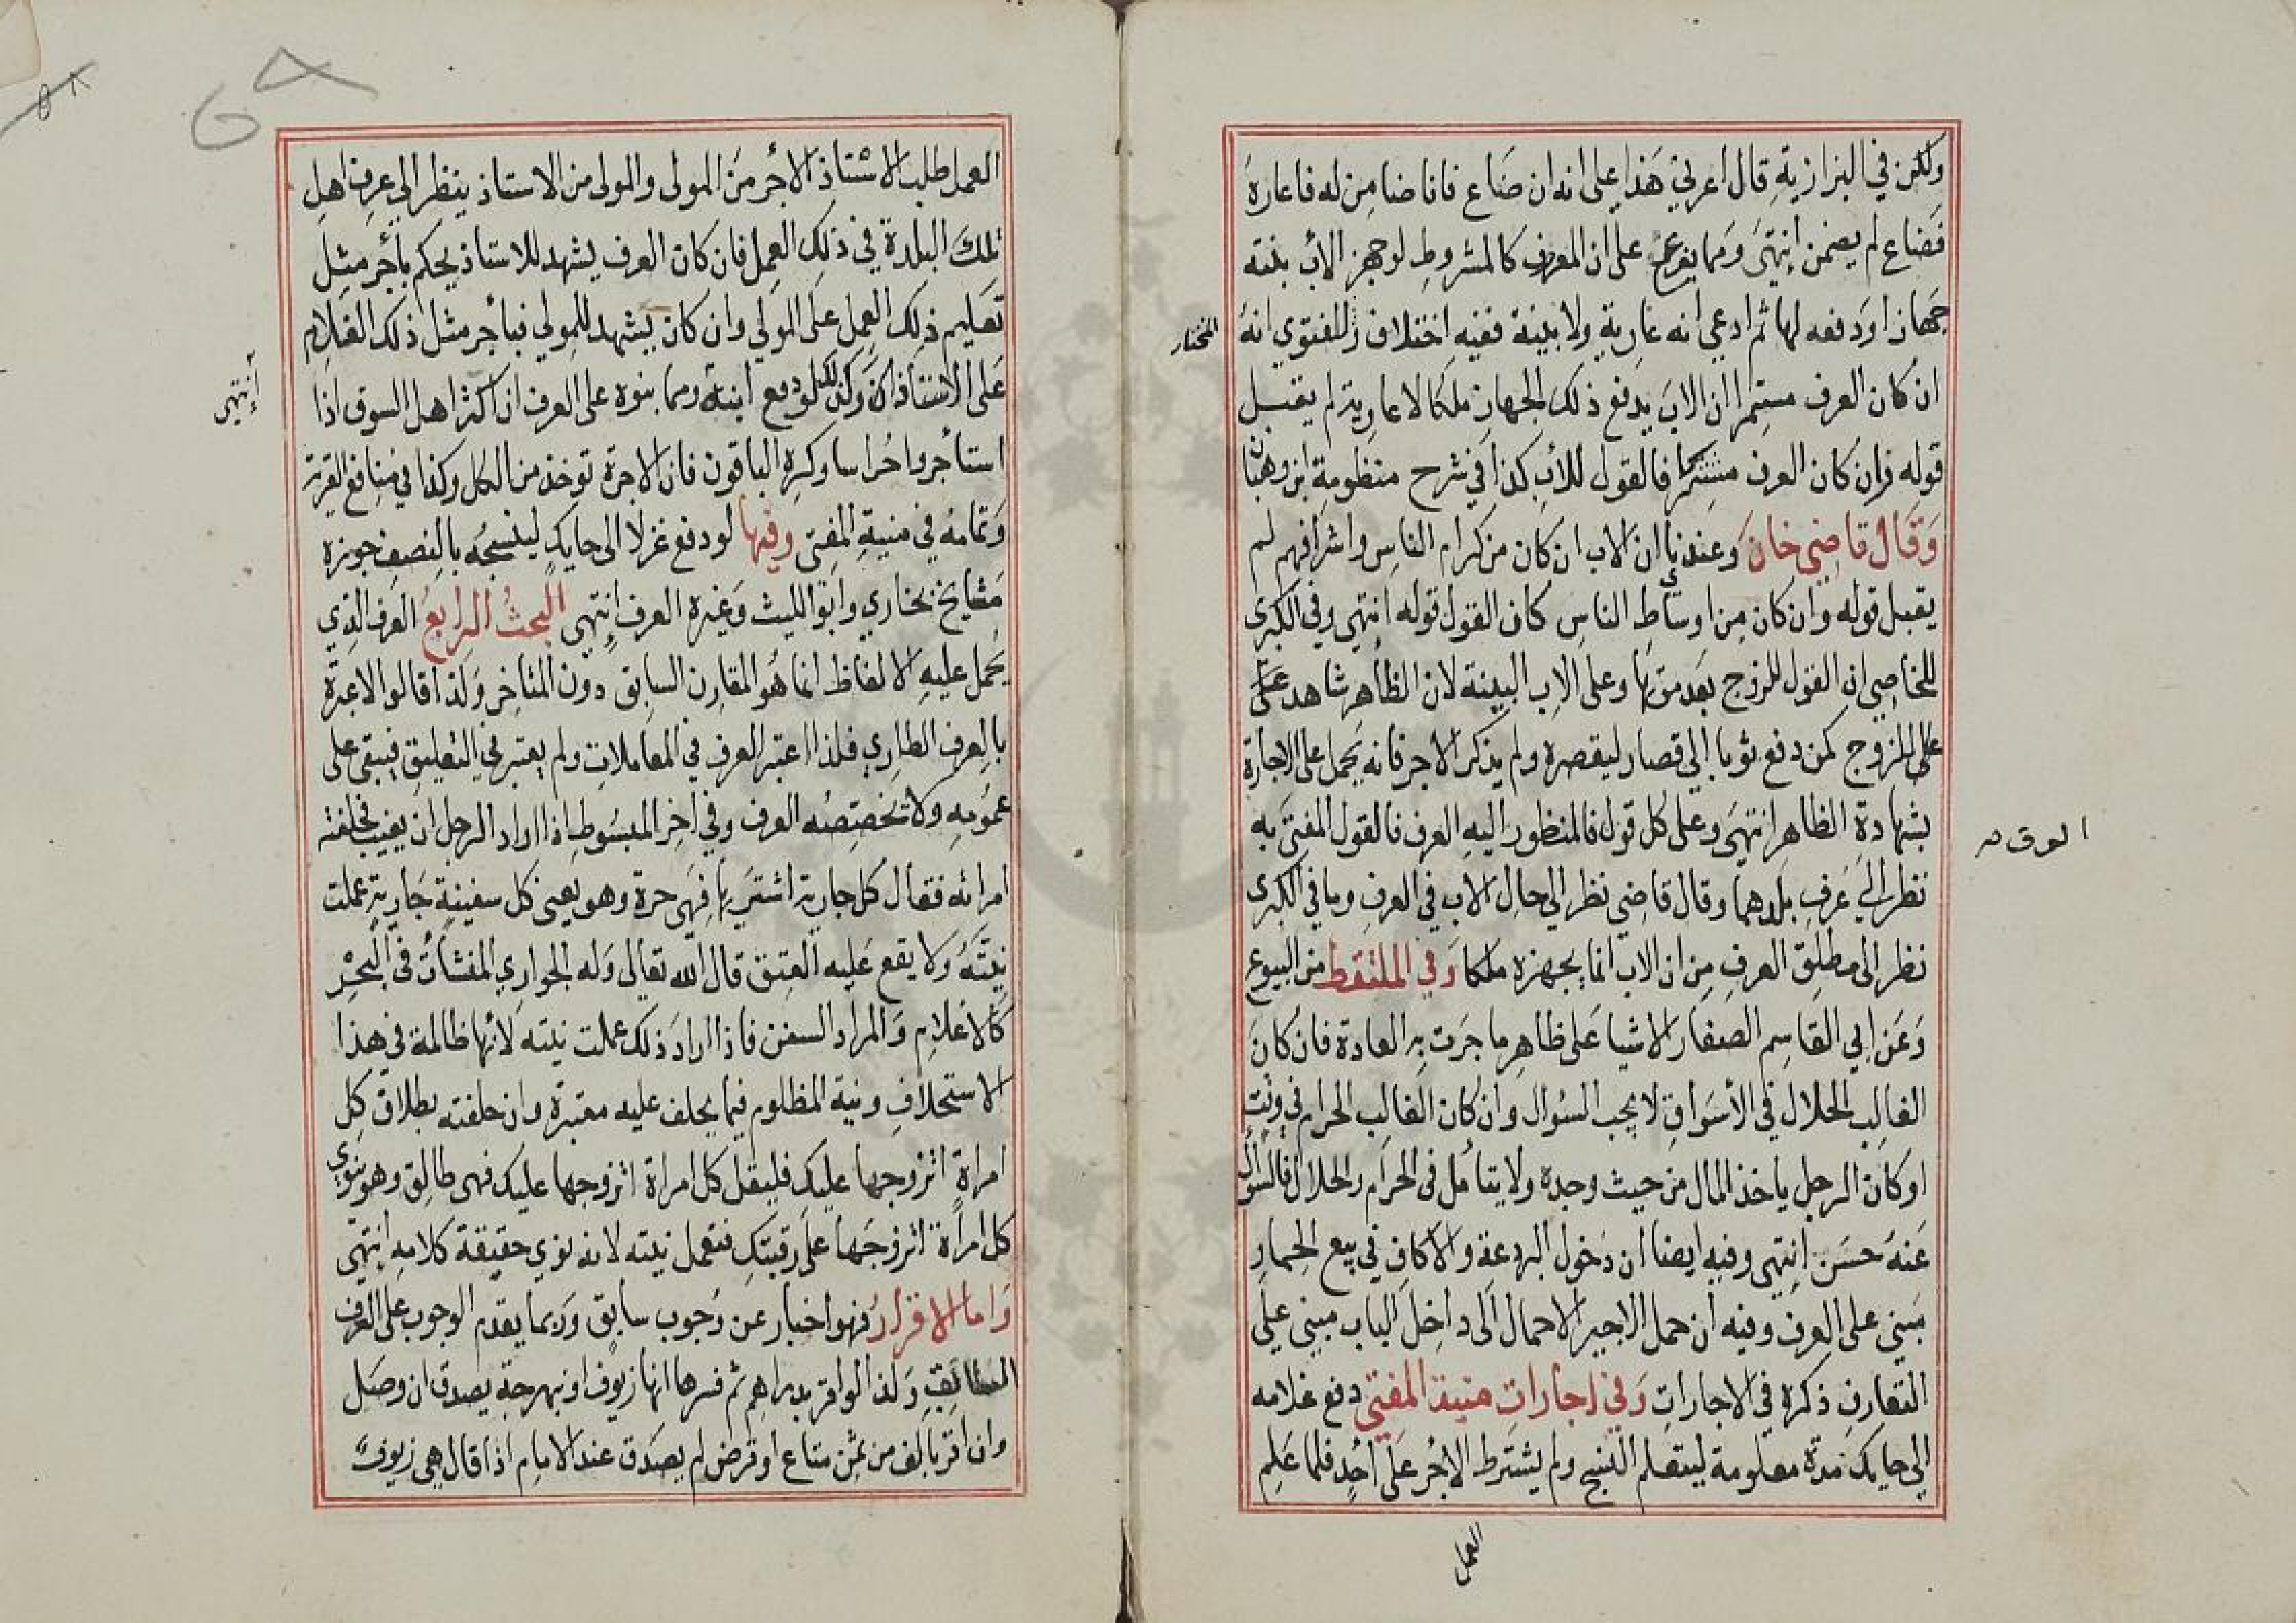 ولكن في البزازية قال اعرني هذا على انه ان ضاع فانا ضامن له فاعاره
فضاع لم يضمن انتهى ومما يفرع على ان المعروف كالمشروط لو جهز الاب بنته
جهازا ودفعه لها ثم ادعى انه عارية ولا بينة ففيه اختلاف والفتوى انه
المختار
ان كان العرف مستمرا ان الاب يدفع ذلك الجهاز ملكا لا عارية لم يقبل
قوله وان كان العرف مشتركا فالقول للأب كذا في شرح منظومة ابن وهبان
وقال قاضي خان وعندي ان الاب ان كان من كرام الناس واشرافهم لم
يقبل قوله وان كان من اوساط الناس كان القول قوله انتهى وفي الكبرى
للخاصي ان القول للزوج بعد موتها وعلى الاب البينة لان الظاهر شاهد
على للزوج كمن دفع ثوبا الى قصار ليقصره ولم يذكر الاجر فانه يحمل على الاجارة
بشهادة الظاهر انتهى وعلى كل قول فالمنظور اليه العرف فالقول المفتى به
نظر الى عرف بلدهما وقال قاضي نظر الى حال الاب في العرف وما في الكبرى
نظر الى مطلق العرف من ان الاب انما يجهزه ملكا وفي الملتقط من البيوع
وعن ابي القاسم الصفار الاشيا على ظاهر ما جرت به العادة فان كان
الغالب الحلال في الأسواق لا يجب السؤال وان كان الغالب الحرام في وقت
او كان الرجل ياخذ المال من حيث وجده ولا يتأمل في الحرام والحلال فالسؤال
عنه حسن انتهى وفيه ايضا ان دخول البردعة والاكاف في بيع الحمار
مبني على العرف وفيه ان حمل الاجير الاحمال الى داخل الباب مبني على
التعارف ذكره في الاجارات وفي اجارات منية المفتي دفع غلامه
الى حايك مدة معلومة ليتعلم النسج ولم يشترط الاجر على أحد فلما علم
العمل
العمل طلب الاستاذ الأجر من المولى والمولى من الاستاذ ينظر الى عرف اهل
تلك البلدة في ذلك العمل فان كان العرف يشهد للاستاذ يحكم بأجر مثل
تعليم ذلك العمل على المولى وان كان يشهد للمولى فبأجر مثل ذلك الغلام
على الاستاذ وكذلك لو دفع ابنه ومما بنوه على العرف ان اكثر اهل السوق اذا
انتهى
استأجروا حراسا وكره الباقون فان الاجرة توخذ من الكل وكذا في منافع القرية
وتمامه في منية المفتي وفيها لو دفع غزلا الى حايك لينسجه بالنصف جوزه
مشايخ بخاري وابو الليث وغيره العرف انتهى البحث الرابع العرف الذي
يحمل عليه الالفاظ انما هو المقارن السابق دون المتاخر ولذا قالوا لا عبرة
بالعرف الطاري فلذا اعتبر العرف في المعاملات ولم يعتبر في التعليق فيبقى على
عمومه ولا تخصصه العرف وفي آخر المبسوط اذا اراد الرجل ان يغيب فحلفته
امراته فقال كل جارية اشتريها فهي حرة وهو يعني كل سفينة جارية عملت
نيته ولا يقع عليه العتق قال الله تعالى وله الجواري المنشأت في البحر
كالاعلام والمراد السفن فاذا اراد ذلك عملت نيته لأنها ظالمة في هذا
الاستحلاف ونية المظلوم فيما يحلف عليه معتبرة وان حلفته بطلاق كل
امراة اتزوجها عليك فليقل كل امراة اتزوجها عليك فهي طالق وهو ينوي
كل امرأة اتزوجها على رقبتك فتعمل نيته لانه نوي حقيقة كلامه انتهى
واما الاقرار فهو اخبار عن وجوب سابق وربما يقدم الوجوب على العرف
ولذا لو اقر بدراهم ثم فسرها انها زيوف او نبهرجة يصدق ان وصل
وان اقر بالف من ثمن متاع او قرض لم يصدق عند الامام اذا قال هي زيوف